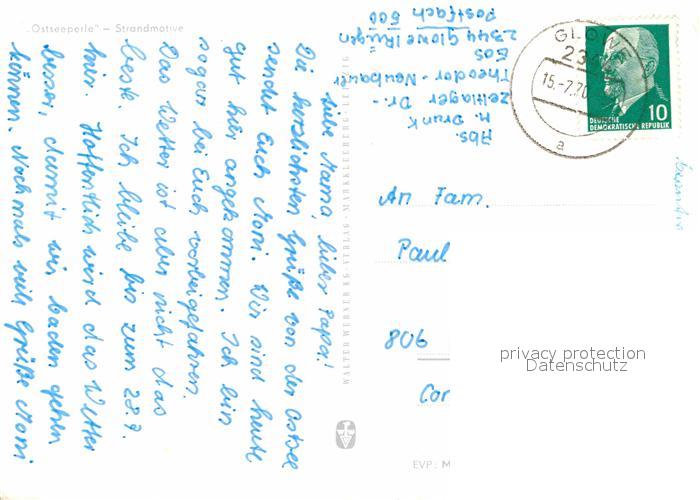 „Ostseeperle“ — Strandmotive
Liebe Mama, lieber Papa!
Die herzlichsten Grüße von der Ostsee
sendet Euch Moni. Wir sind heute
gut hier angekommen. Ich bin
sogar bei Euch vorbeigefahren.
Das Wetter ist aber nicht das
beste. Ich bleibe bis zum 28.7.
hier. Hoffentlich wird das Wetter
besser, damit wir baden gehen
können. Nochmals viele Grüße Moni
WALTER WERNER KG-VERLAG · MARKKLEEBERG-LEIPZIG
EVP: M
Abs.
M. Drunk
Zeltlager Dr.-
Theodor-Neubauer
EOS
2344 Glowe/Rügen
Postfach 500
GLOWE
15.-7.70
a
10
DEUTSCHE
DEMOKRATISCHE REPUBLIK
An Fam.
Paul
806
Cor
privacy protection
Datenschutz